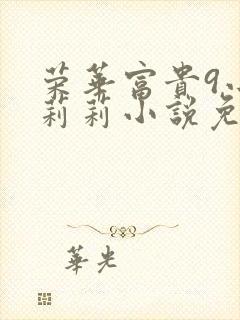 荣華富貴9、
莉莉小說免
華光